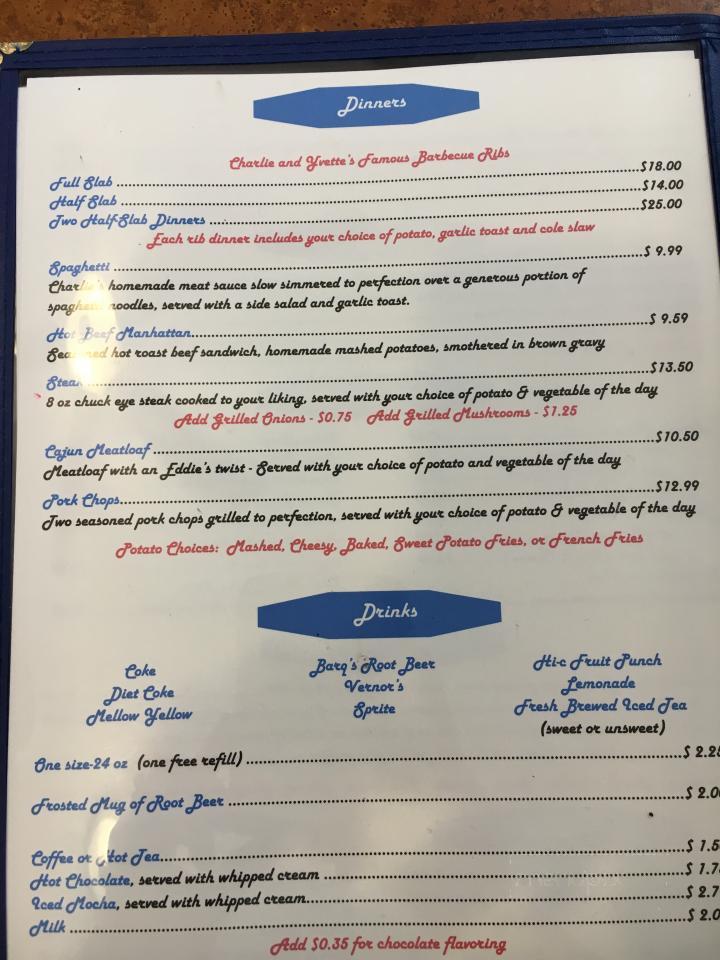 Dinners
Charlie and Yvette's Famous Barbecue Ribs
Full Slab ........ $18.00
Half Slab ........ $14.00
Two Half-Slab Dinners ........ $25.00
Each rib dinner includes your choice of potato, garlic toast and cole slaw
Spaghetti ........ $ 9.99
Charlie's homemade meat sauce slow simmered to perfection over a generous portion of
spaghetti noodles, served with a side salad and garlic toast.
Hot Beef Manhattan........ $ 9.59
Seasoned hot roast beef sandwich, homemade mashed potatoes, smothered in brown gravy
Steak ........ $13.50
8 oz chuck eye steak cooked to your liking, served with your choice of potato & vegetable of the day
Add Grilled Onions - $0.75 Add Grilled Mushrooms - $1.25
Cajun Meatloaf ........ $10.50
Meatloaf with an Eddie's twist - Served with your choice of potato and vegetable of the day
Pork Chops........ $12.99
Two seasoned pork chops grilled to perfection, served with your choice of potato & vegetable of the day
Potato Choices: Mashed, Cheesy, Baked, Sweet Potato Fries, or French Fries
Drinks
Coke
Diet Coke
Mellow Yellow
Barq's Root Beer
Vernor's
Sprite
Hi-c Fruit Punch
Lemonade
Fresh Brewed Iced Tea
(sweet or unsweet)
One size-24 oz (one free refill) ........ $ 2.25
Frosted Mug of Root Beer ........ $ 2.0
Coffee or Hot Tea........ $ 1.5
Hot Chocolate, served with whipped cream ........ $ 1.7
Iced Mocha, served with whipped cream........ $ 2.7
Milk ........ $ 2.0
Add $0.35 for chocolate flavoring